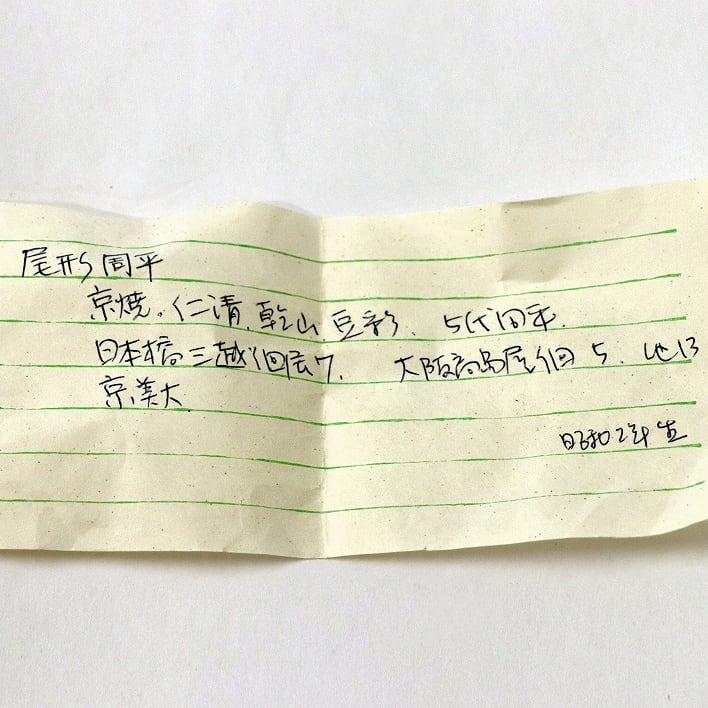 尾形周平
京焼。仁清.乾山.豆彩. 5代周平.
日本橋三越個展7. 大阪高島屋個5. 他13
京美大
昭和2年生